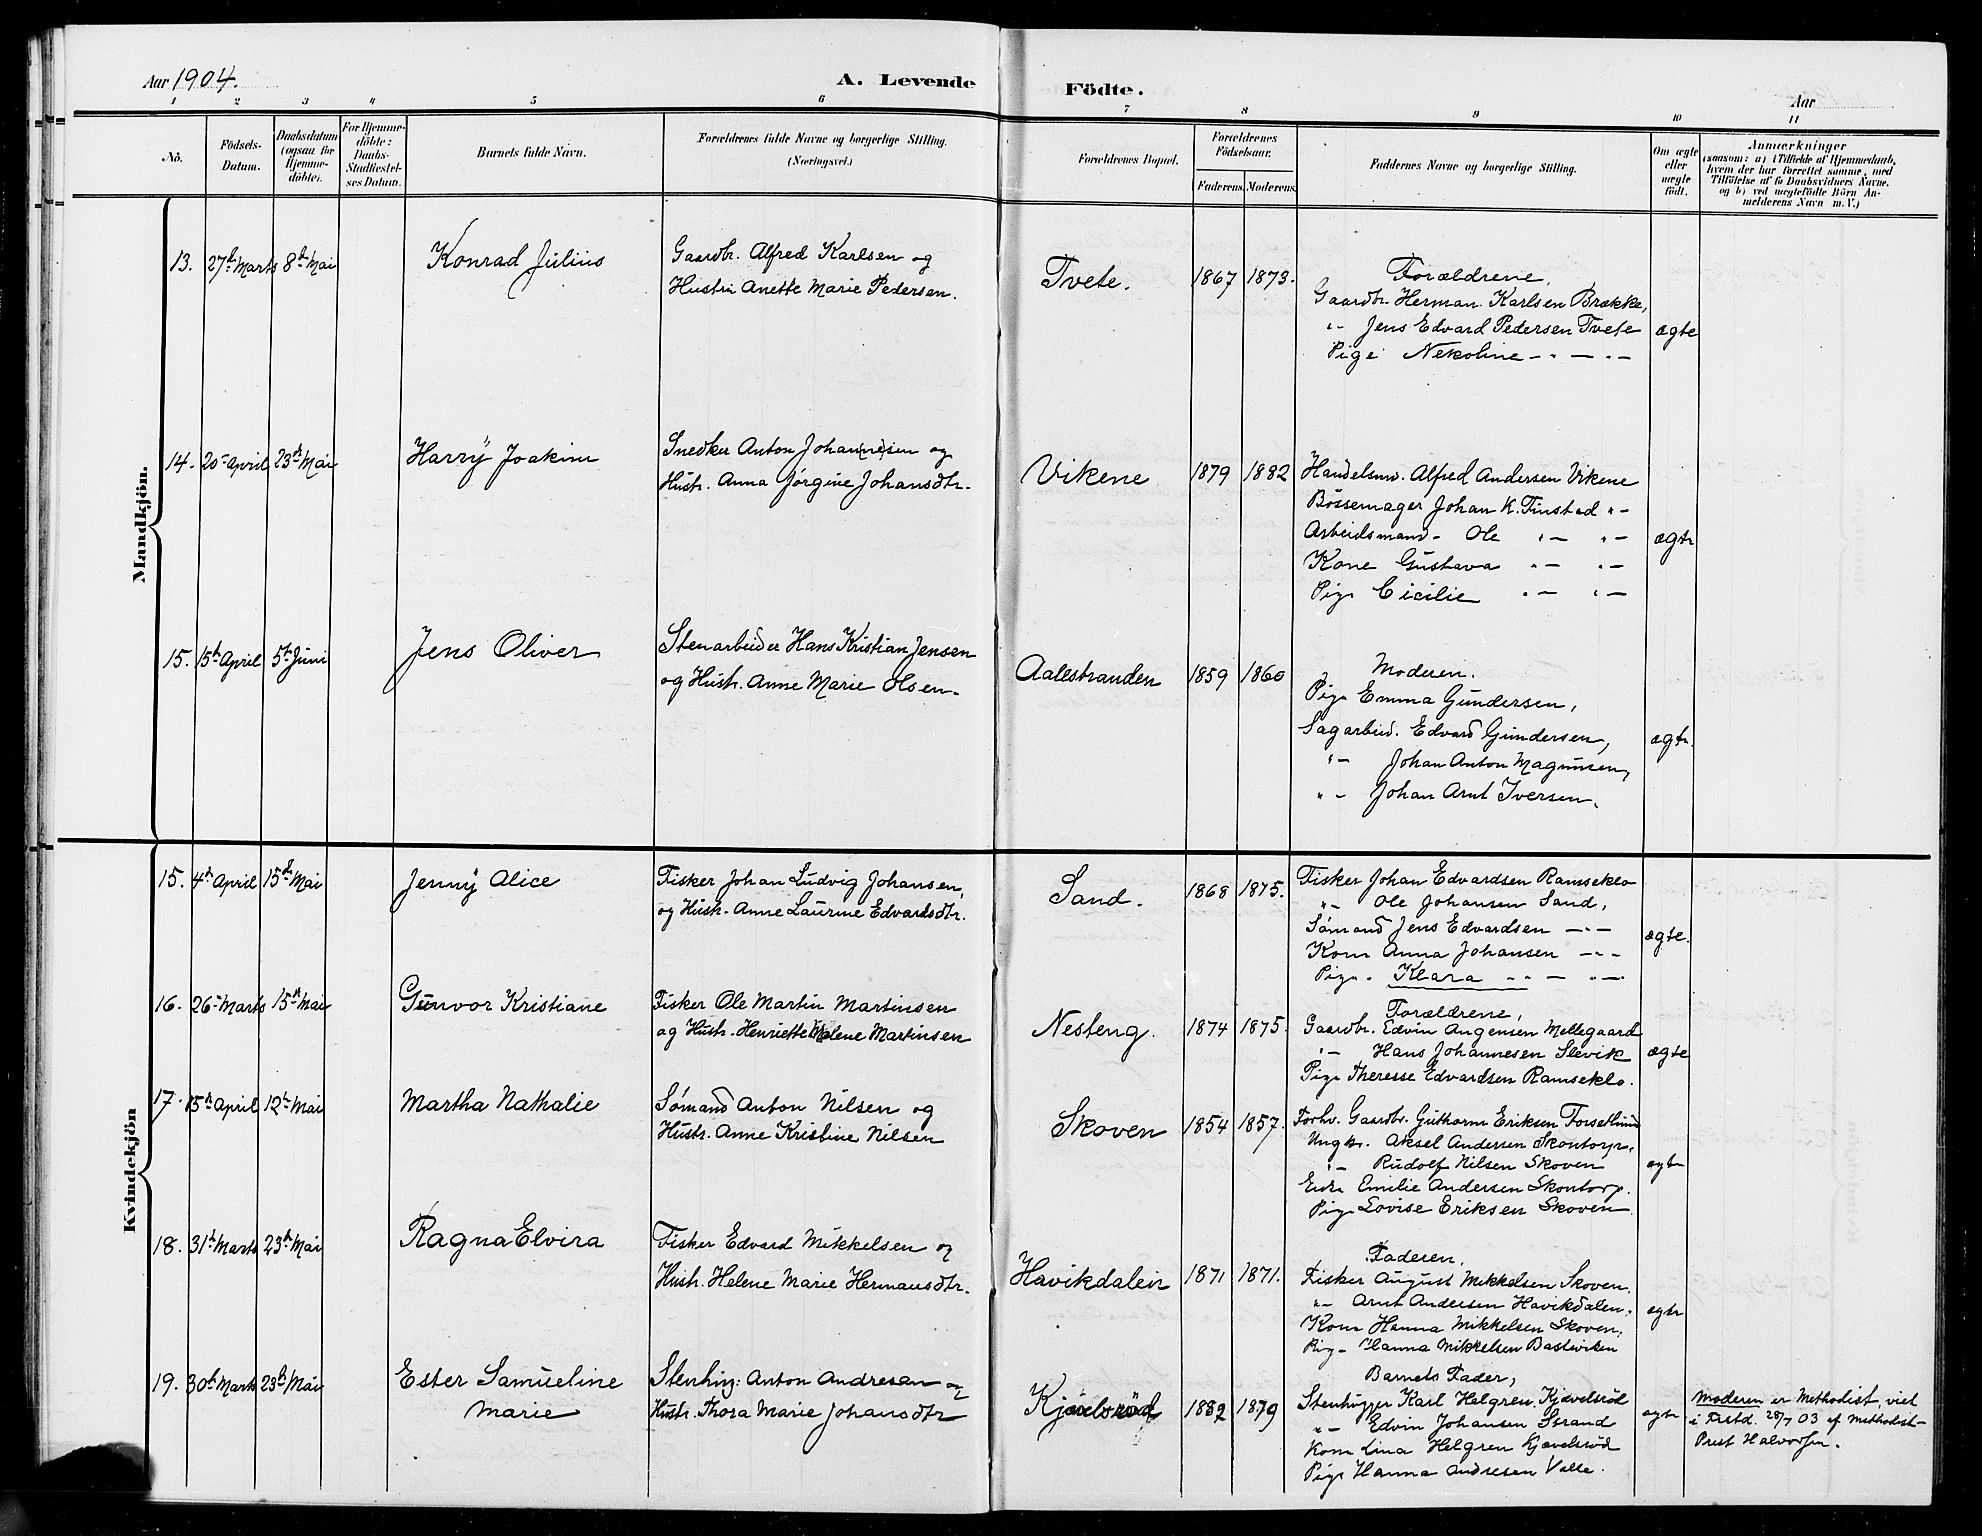 Aar 1904.
A. Levende Födte.
Aar
1 2 3 4 5 6 7 8 9 10 11
No.
Födsels-Datum.
Daabsdatum (ogsaa for Hjemme-döbte).
For Hjemme-döbte: Daabs-Stadfæstel-ses Datum.
Barnets fulde Navn.
Forældrenes fulde Navne og borgerlige Stilling.
(Næringsvei.)
Forældrenes Bopæl.
Forældrenes Födselsaar.
Faderens. Moderens.
Faddernes Navne og borgerlige Stilling.
Om ægte eller uægte födt.
Anmærkninger
(saasom: a) i Tilfælde af Hjemmedaab,
hvem der har forrettet samme, med
Tilföielse af to Daabsvidners Navne.
og b) ved uægtefödte Börn An-
melderens Navn m. V.)
Mandkjön.
13. 27de Marts 8de Mai
Konrad Julius
Gaardbr. Alfred Karlsen og
Hustru Anette Marie Pedersen.
Tvete.
1867 1873.
Forældrene,
Gaardbr. Herman Karlsen Brække,
"- Jens Edvard Pedersen Tvete
Pige Nekoline -"- -"-
ægte
14. 20- April 23de Mai
Harry Joakim
Snedker Anton Johan(ne)sen og
Hustr. Anna Jørgine Johansdtr.
Vikene
1879 1882
Handelsm. Alfred Andersen Vikene
Bössemager Johan K. Finstad "-
Arbeidsmand- Ole "- "-
Kone Gustava "- "-
Pige Cicilie "- "-
ægte
15. 15de April 5te Juni
Jens Oliver
Stenarbeider Hans Kristian Jensen
og Hustr. Anne Marie Olsen.
Aalestranden
1859 1860
Moderen.
Pige Emma Gundersen,
Sagarbeid. Edvard Gundersen,
"- Johan Anton Magnusen,
"- Johan Arnt Iversen.
ægte.
Kvindekjön
15. 4de April 15de Mai
Jenny Alice
Fisker Johan Ludvig Johansen,
og Hustr. Anne Laurine Edvardsdtr.
Sand.
1868 1875.
Fisker Johan Edvardsen Ramseklo
"- Ole Johansen Sand,
Sømand Jens Edvardsen -"-
Kone Anna Johansen -"-
Pige. Klara "- - "-
ægte.
16. 26- Marts 15de Mai
Gunvor Kristiane
Fisker Ole Martin Martinsen
og Hustr. Henriette Malene Martinsen
Nesteng.
1874 1875.
Forældrene,
Gaardbr. Edvin Angensen Mellegaard
"- Hans Johannesen Slevik
Pige Theresse Edvardsen Ramseklo.
ægte
17. 15de April 12te Mai
Martha Nathalie
Sømand Anton Nilsen og
Hustr. Anne Kristine Nilsen
Skoven
1854 1857.
Forhv. Gaardbr. Guthorm Eriksen Forsetlund
Ungk. Aksel Andersen Skontorp.
"- Rudolf Nilsen Skoven
Enke Emilie Andersen Skontorp.
Pige Lovise Eriksen Skoven
ægte
18. 31te Marts 23de Mai
Ragna Elvira
Fisker Edvard Mikkelsen og
Hustr. Helene Marie Hermansdtr.
Havikdalen
1871 1871.
Faderen.
Fisker August Mikkelsen Skoven.
"- Arnt Andersen Havikdalen,
Kone Hanna Mikkelsen Skoven.
Pige Hanna Mikkelsen Basteviken
ægte
19. 30te Marts 23de Mai
Ester Samueline
Marie
Stenhug: Anton Andresen og
Hustr. Thora Marie Johansdtr
Kjævelsröd
1882 1879
Barnets Fader,
Stenhugger Karl Helgren Kjævelsröd
"- Edvin Johansen Strand
Kone Lina Helgren Kjævelsröd
Pige Hanna Andresen Valle.
ægte
Moderen er Methodist, viet
i Frstd. 28/7 03 af Methodist-
Prest Halvorsen.